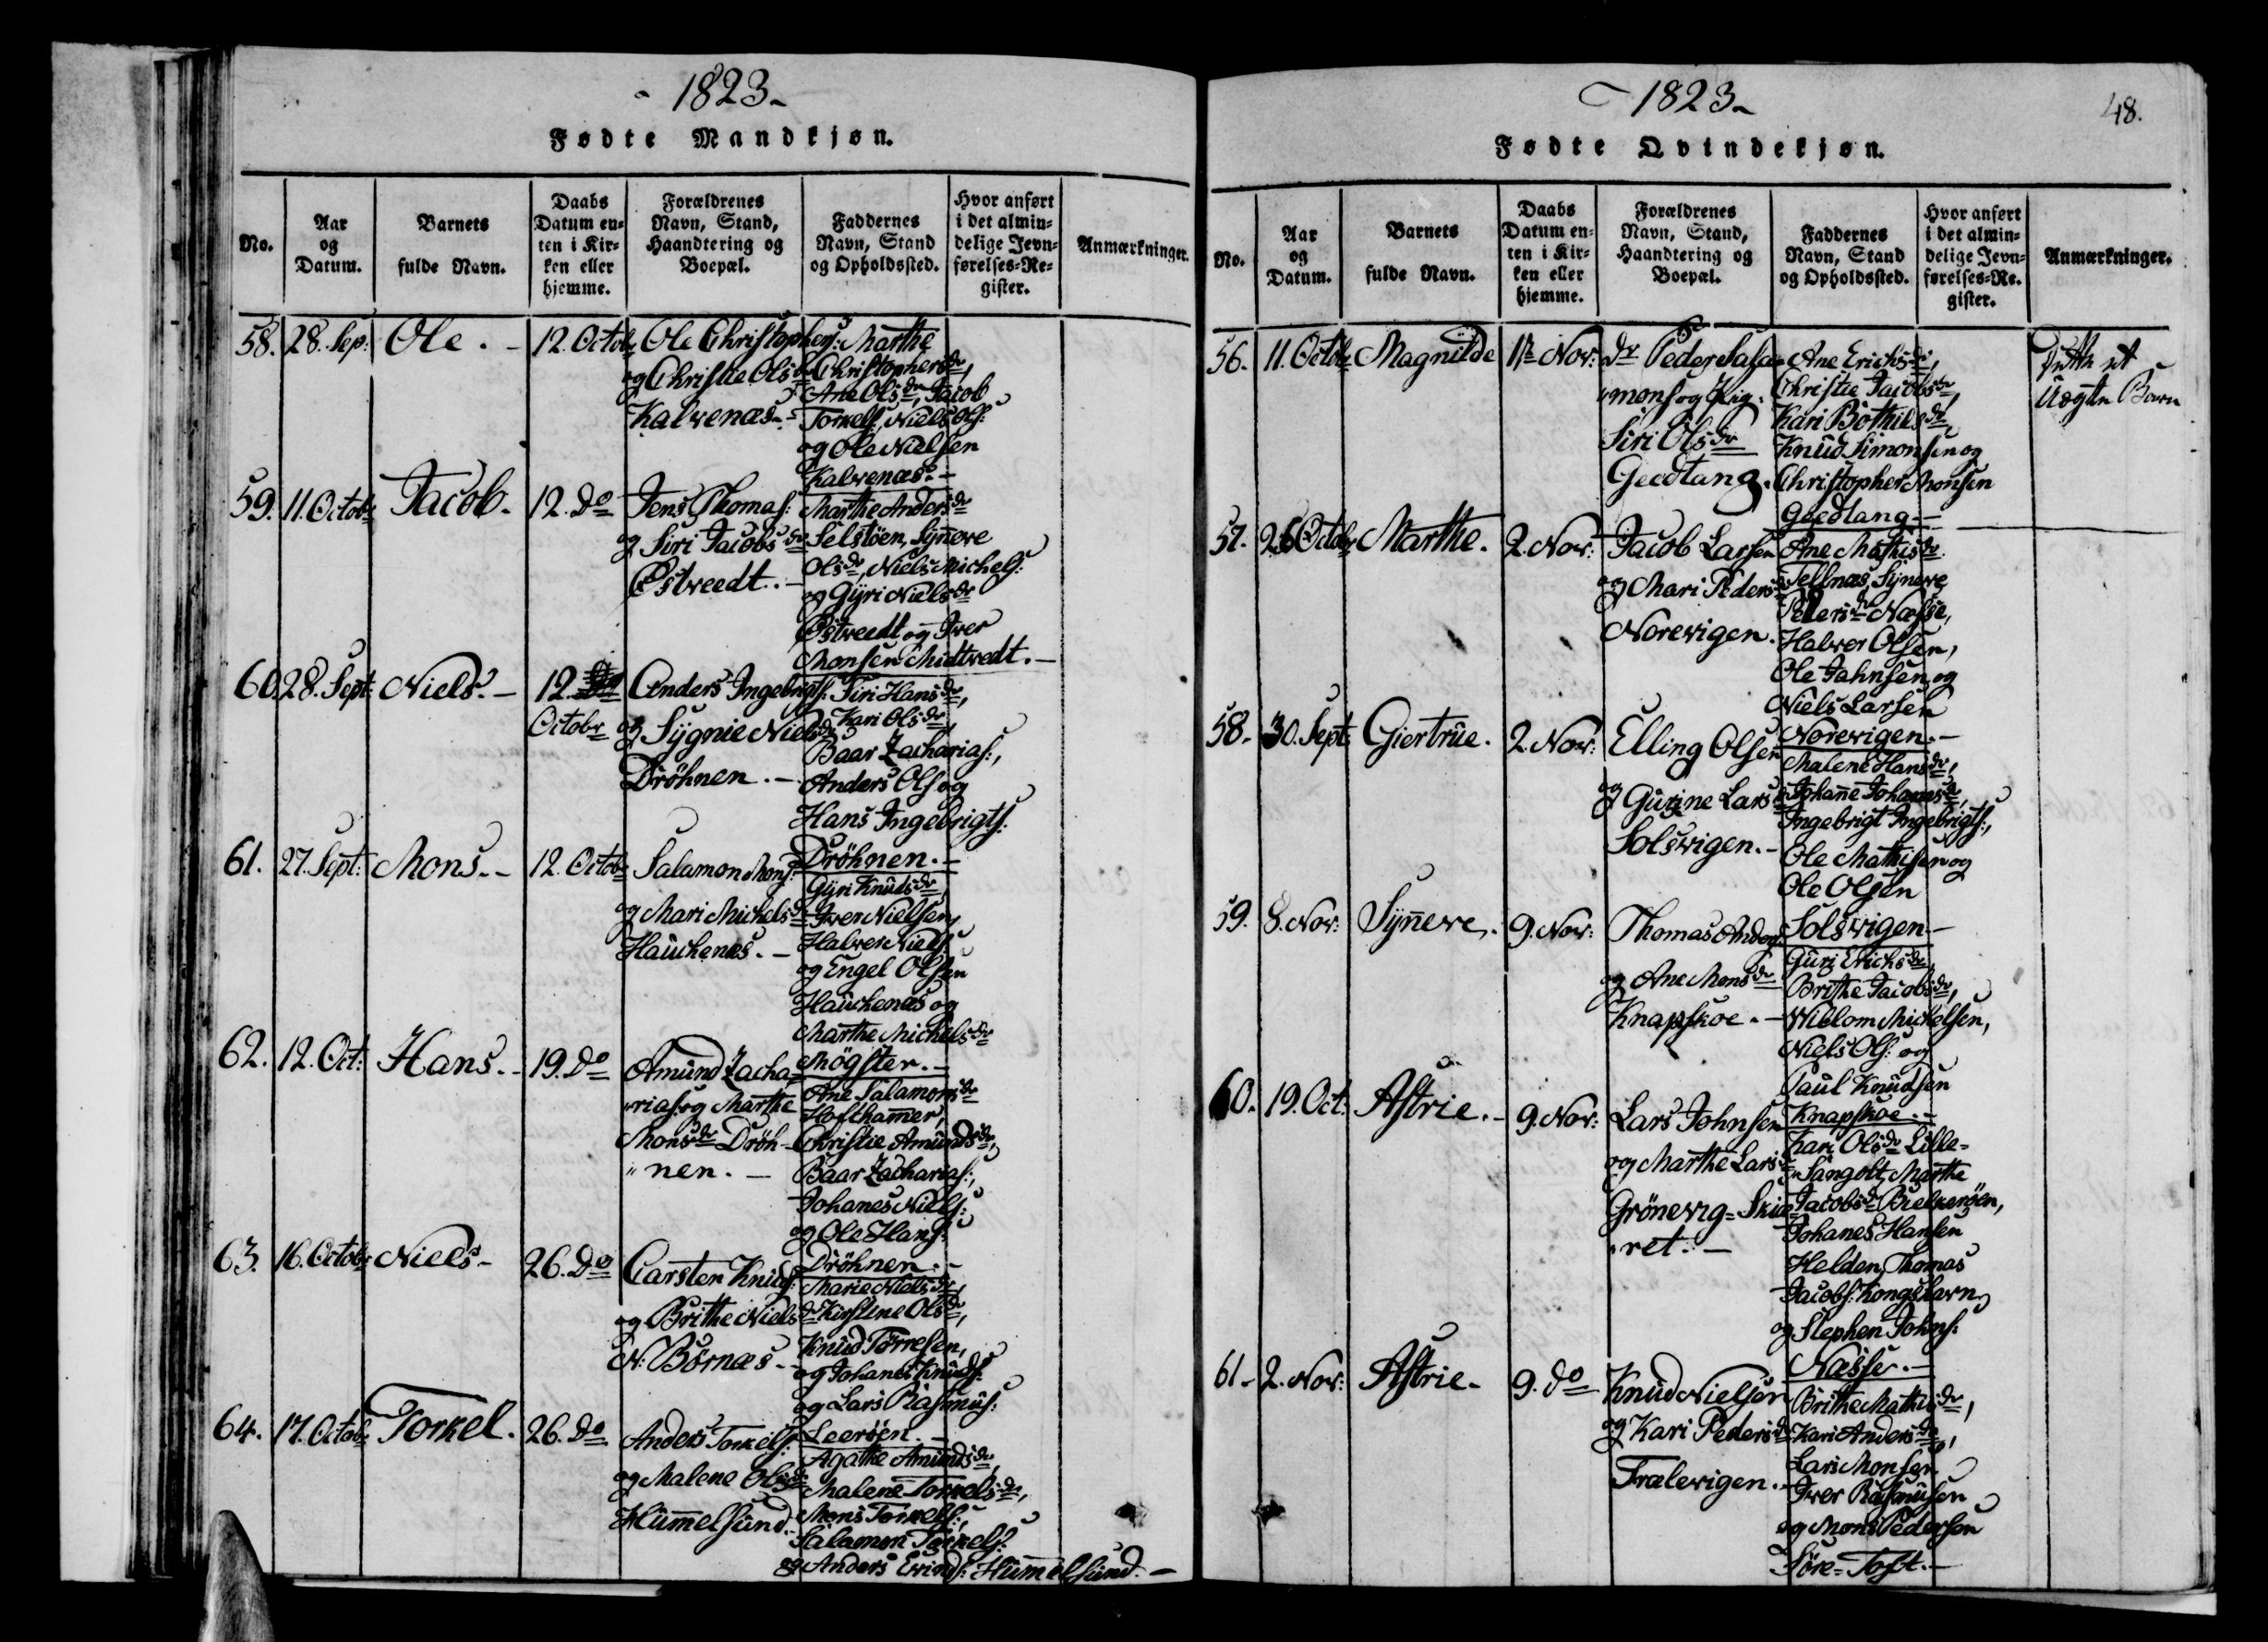 - 1823 -
Fødte Mandkjøn.
No.
Aar
og
Datum.
Barnets
fulde Navn.
Daabs
Datum en-
ten i Kir-
ken eller
hjemme.
Forældrenes
Navn, Stand,
Haandtering og
Boepæl.
Faddernes
Navn, Stand
og Opholdssted.
Hvor anført
i det almin-
delige Jevn-
førelses-Re-
gister.
Anmærkninger.
58. 28. Sep: Ole. - 12. Octobr
Ole Christophers:
og Christie Olsdr
Kalvenæs. -
Marthe
Christophersdr,
Ane Olsdr, Jacob
Torkels:, Niels Ols:
og Ole Nielsen
Kalvenæs. -
59. 11. Octobr Jacob. 12. do
Jens Thomas:
og Siri Jacobsdr
Østvedt. -
Marthe Andersdr
Selstöen, Sÿñove
Olsdr, Niels Michels:
og Gÿri Nielsdr
Østvedt og Iver
Monsen Midtvedt. -
60. 28. Sept: Niels. - 12.
Octobr
Anders Ingebrigts:
og Sÿgnie Nielsdr
Dröhnen. -
Siri Hansdr,
Kari Olsdr,
Baar Zacharias:,
Anders Ols: og
Hans Ingebrigts:
Dröhnen. -
61. 27. Sept: Mons. - 12. Octobr
Salamon Mons:
og Mari Michelsdr
Hauchenæs. -
Gÿri Knudsdr,
Iver Nielsen,
Halver Niels:
og Engel Olsen
Hauchenæs og
Marthe Michelsdr
Mögster. -
62. 12. Oct: Hans. - 19. do
Amund Zacha-
"rias: og Marthe
Monsdr Dröh-
"nen. -
Ane Salamonsdr
Hofthamer,
Christie Amundsdr,
Baar Zacharias:,
Johanes Niels:
og Ole Hans:
Dröhnen. -
63. 16. Octobr Niels - 26. do
Carsten Knuds:
og Brithe Nielsdr
N: Börnæs -
Marie Nielsdr,
Kirstine Olsdr,
Knud Törresen,
og Johanes Knuds:
og Lars Rasmus:
Leeröen. -
64. 17. Octobr Torkel. 26. do
Anders Torkels:
og Malene Olsdr
Hum̄elsund. -
Agathe Amundsdr,
Malene Torkelsdr,
Mons Torkels:,
Salamon Torkels:
og Anders Hum̄elsund. -
- 1823 -
48.
Fødte Qvindekjøn.
No.
Aar
og
Datum.
Barnets
fulde Navn.
Daabs
Datum en-
ten i Kir-
ken eller
hjemme.
Forældrenes
Navn, Stand,
Haandtering og
Boepæl.
Faddernes
Navn, Stand
og Opholdssted.
Hvor anført
i det almin-
delige Jevn-
førelses-Re-
gister.
Anmærkninger.
56. 11. Octobr Magnilde Nov:
Peder Sala-
"mons: og Pig:
Siri Olsdr
Geedtang.
Ane Erichsdr,
Christie Jacobsdr,
Kari Bothilsdr,
Knud Simonsen og
Christopher Monsen
Geedtang. -
et
Uægte Barn
57. 26 Octobr Marthe. 2. Nov:
Jacob Larsen
og Mari Pedersdr
Norevigen.
Ane Mathisdr
Tellnæs, Sÿneve
Pedersdr Næsse,
Halver Olsen,
Ole Jahnsen og
Niels Larsen
Norevigen. -
58. 30. Sept: Giertrue. 2. Nov:
Elling Olsen
og Gurine Larsdr
Solsvigen. -
Malene Hansdr,
Johañe Johanesdr,
Ingebrigt Ingebrigts:,
Ole Mathisen og
Ole Olsen
Solsvigen. -
59. 8. Nov: Sÿñeve. 9. Nov:
Thomas Anders:
og Ane Monsdr
Knapskoe. -
Guri Erichsdr,
Brithe Jacobsdr,
Willom Michelsen,
Niels Ols: og
Paul Knudsen
Knapskoe. -
60. 19. Oct: Astrie. - 9. Nov:
Lars Johnsen
og Marthe Larsdr
Grönevig-Skiæ-
"ret. -
Kari Olsdr Lille-
"Sangolt, Marthe
Jacobsdr Bielkeröen,
Johanes Hansen
Helden, Thomas
Jacobs: Kongshavn,
og Stephen Johns:
Næsse. -
61 - 2. Nov: Astrie - 9. do
Knud Nielsen
og Kari Pedersdr
Trælevigen. -
Brithe Mathisdr,
Kari Andersdr,
Lars Monsen,
Iver Rasmusen
og Mons Pedersen
Söre-Toft. -